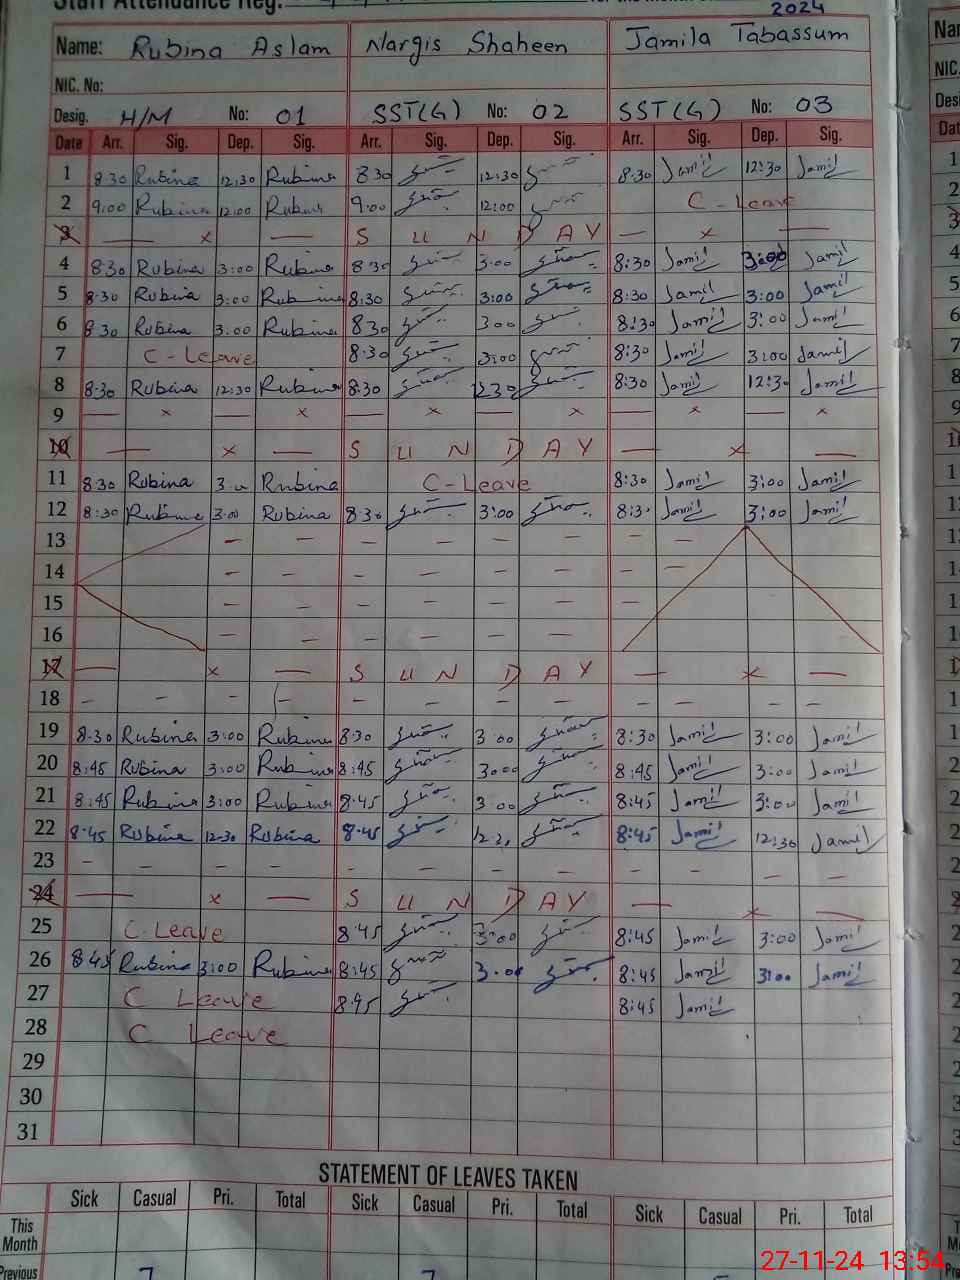 Staff Attendance Reg.
2024
Name: Rubina Aslam Nargis Shaheen Jamila Tabassum
NIC. No:
Desig. H/M No: 01 SST(G) No: 02 SST(G) No: 03
Date Arr. Sig. Dep. Sig. Arr. Sig. Dep. Sig. Arr. Sig. Dep. Sig.
1 8:30 Rubina 12:30 Rubina 8:30 12:30 8:30 Jamil 12:30 Jamil
2 9:00 Rubina 12:00 Rubina 9:00 12:00 C - Leave
3 — x — S U N D A Y — x —
4 8:30 Rubina 3:00 Rubina 8:30 3:00 8:30 Jamil 3:00 Jamil
5 8:30 Rubina 3:00 Rubina 8:30 3:00 8:30 Jamil 3:00 Jamil
6 8:30 Rubina 3:00 Rubina 8:30 3:00 8:30 Jamil 3:00 Jamil
7 C - Leave 8:30 3:00 8:30 Jamil 3:00 Jamil
8 8:30 Rubina 12:30 Rubina 8:30 12:30 8:30 Jamil 12:30 Jamil
9 — x — x — x — x — x — x
10 — x — S U N D A Y — x —
11 8:30 Rubina 3:00 Rubina C - Leave 8:30 Jamil 3:00 Jamil
12 8:30 Rubina 3:00 Rubina 8:30 3:00 8:30 Jamil 3:00 Jamil
13 - - - - - - - -
14 - - - - - - - -
15 - - - - - - -
16 - - - - - -
17 — x — S U N D A Y — x —
18 - - - - - - - - - - - -
19 8:30 Rubina 3:00 Rubina 8:30 3:00 8:30 Jamil 3:00 Jamil
20 8:45 Rubina 3:00 Rubina 8:45 3:00 8:45 Jamil 3:00 Jamil
21 8:45 Rubina 3:00 Rubina 8:45 3:00 8:45 Jamil 3:00 Jamil
22 8:45 Rubina 12:30 Rubina 8:45 8:45 Jamil 12:30 Jamil
23 - - - - - - - - - - - -
24 — x — S U N D A Y — x —
25 C. Leave 8:45 3:00 8:45 Jamil 3:00 Jamil
26 8:45 Rubina 3:00 Rubina 8:45 3:00 8:45 Jamil 3:00 Jamil
27 C Leave 8:45 8:45 Jamil
28 C Leave
29
30
31
STATEMENT OF LEAVES TAKEN
Sick Casual Pri. Total Sick Casual Pri. Total Sick Casual Pri. Total
This Month
Previous
27-11-24 13:54